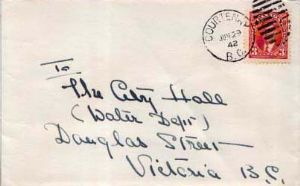 COURTENAY
JUN 29
42
B.C.
3
To
The City Hall
(Water Dept)
Douglas Street
Victoria B.C.